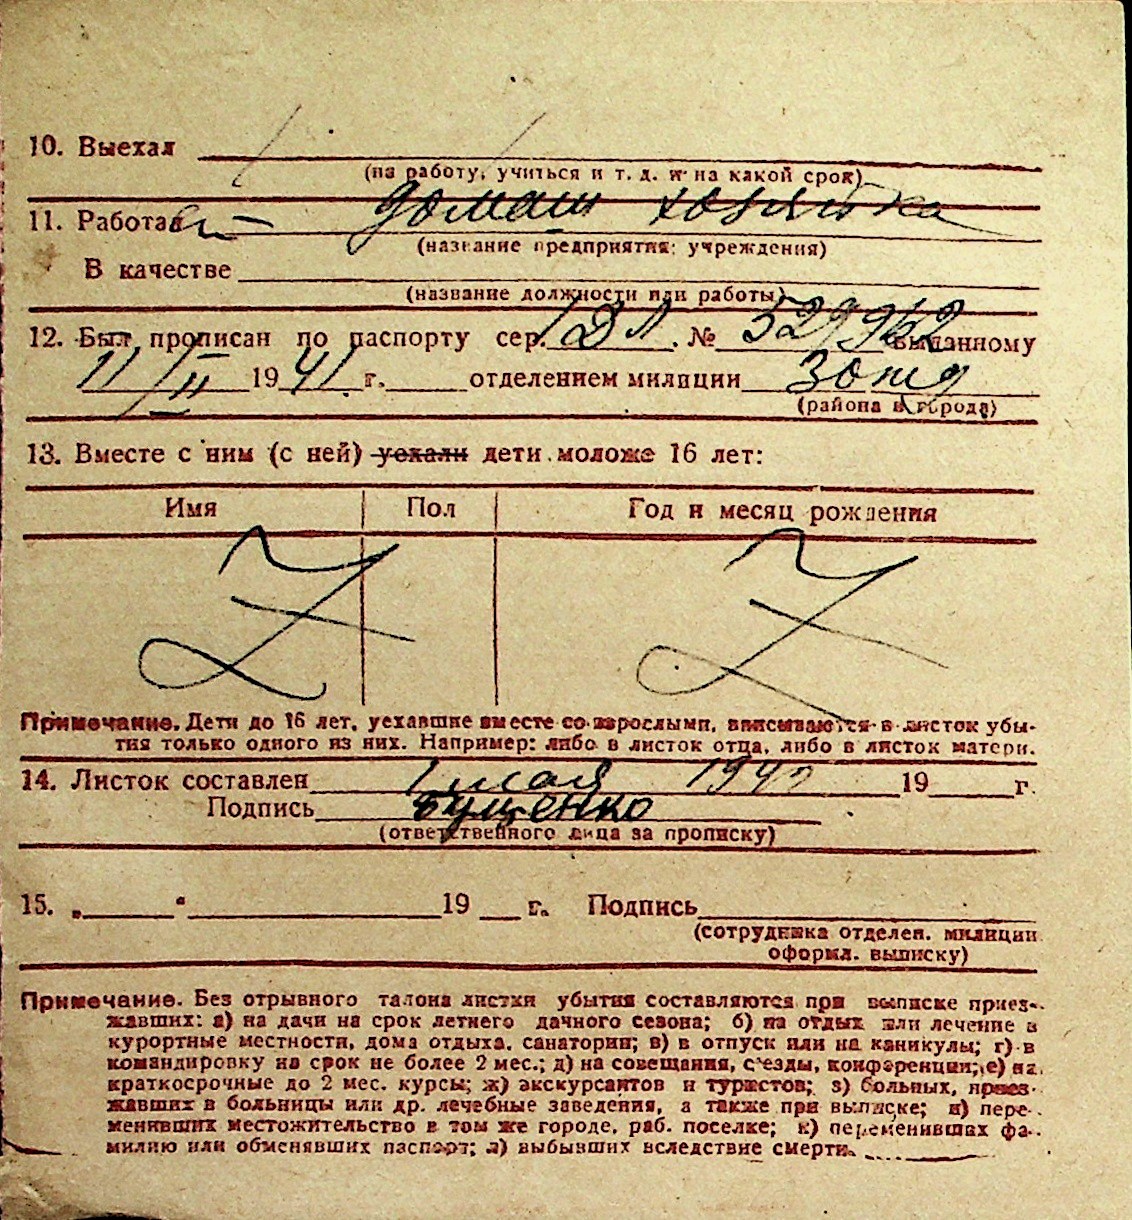 10. Выехал
(на работу, учиться и т. д. и на какой срок)
11. Работал домаш хозяйка
(название предприятия, учреждения)
В качестве
(название должности или работы)
12. Был прописан по паспорту сер. I ДЛ № 529962 выданному
11/II 1941 г. отделением милиции 30 отд
(района и города)
13. Вместе с ним (с ней) уехали дети моложе 16 лет:
Имя Пол Год и месяц рождения
Примечание. Дети до 16 лет, уехавшие вместе со взрослыми, вписываются в листок убы-
тия только одного из них. Например: либо в листок отца, либо в листок матери.
14. Листок составлен 1 мая 194 19 г.
Подпись Бущенко
(ответственного лица за прописку)
15. „ “ 19 г. Подпись
(сотрудника отделен. милиции
оформл. выписку)
Примечание. Без отрывного талона листки убытия составляются при выписке приез-
жавших: а) на дачи на срок летнего дачного сезона; б) на отдых или лечение в
курортные местности, дома отдыха, санатории; в) в отпуск или на каникулы; г) в
командировку на срок не более 2 мес.; д) на совещания, съезды, конференции; е) на
краткосрочные до 2 мес. курсы; ж) экскурсантов и туристов; з) больных, приез-
жавших в больницы или др. лечебные заведения, а также при выписке; и) пере-
менивших местожительство в том же городе, раб. поселке; к) переменивших фа-
милию или обменявших паспорт; л) выбывших вследствие смерти.